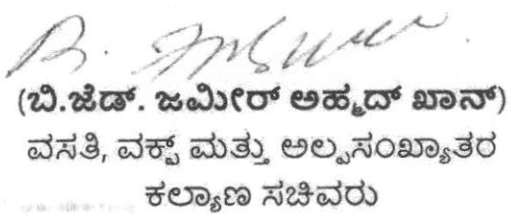 (ಬಿ.ಜೆಡ್. ಜಮೀರ್ ಅಹ್ಮದ್ ಖಾನ್)
ವಸತಿ, ವಕ್ಫ್ ಮತ್ತು ಅಲ್ಪಸಂಖ್ಯಾತರ
ಕಲ್ಯಾಣ ಸಚಿವರು